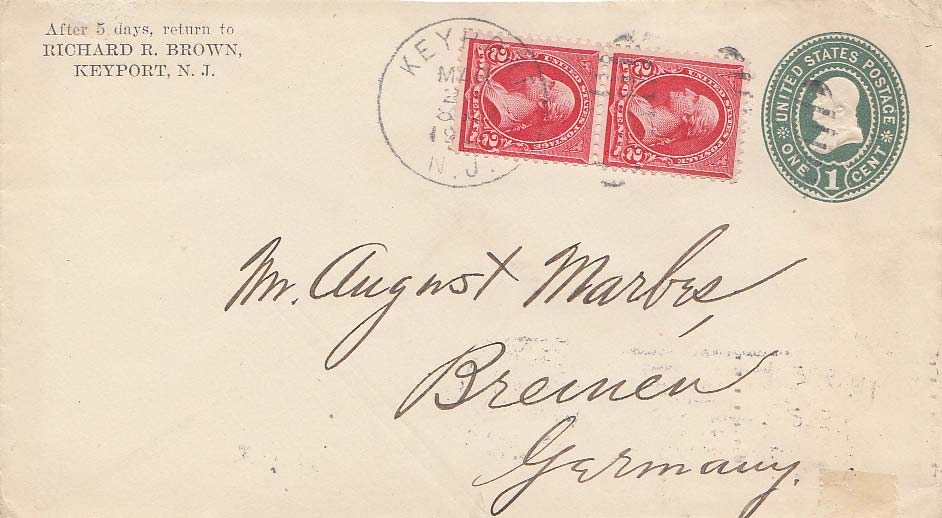 After 5 days, return to
RICHARD R. BROWN,
KEYPORT, N. J.
KEYPO
MA
N. J.
UNITED STATES POSTAGE
TWO CENTS
2 2
UNITED STATES POSTAGE
TWO CENTS
2 2
UNITED STATES POSTAGE
ONE 1 CENT
Mr. August Marbes,
Bremen
Germany.